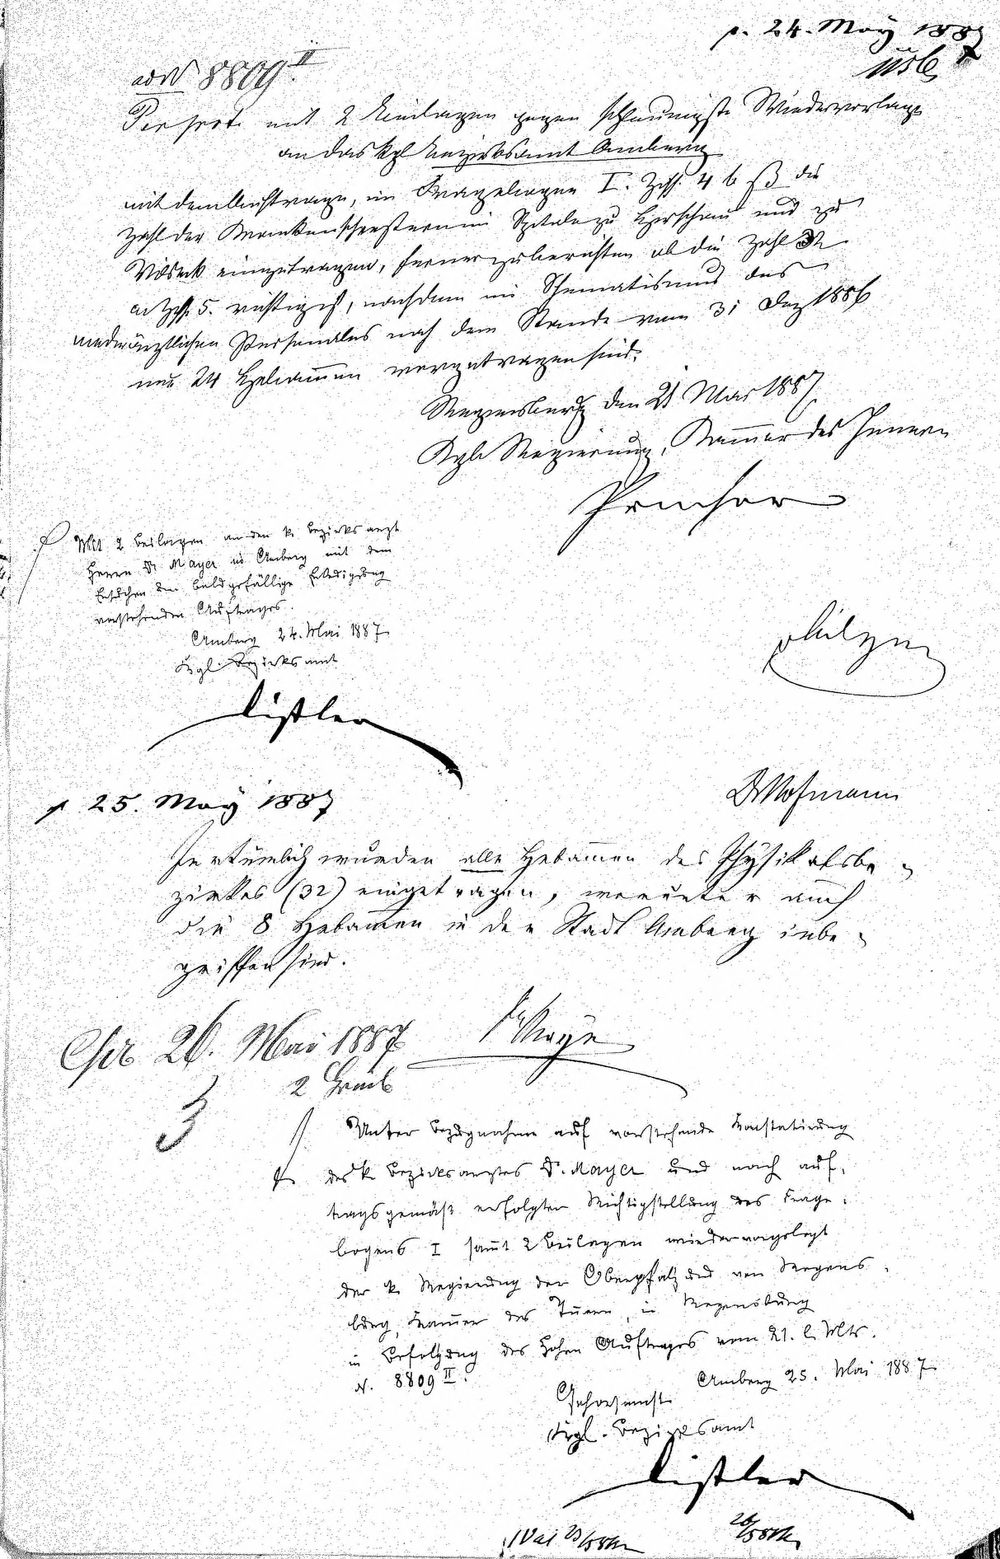 p. 24. May 1887
ad N 8809 II.
mit 2 Einlagen gegen schleunigste Wiedervorlage
an das kgl Bezirksamt Amberg
mit dem Auftrage, im Fragebogen I. Ziff. 4 b die
Zahl der Krankenschwestern im Spitale zu Hirschau und zu
Vilseck einzutragen, ferner zu berichten ob die Zahl 32
ad Ziff. 5. richtig ist, nachdem im Schematismus des
medicinärztlichen Personales nach dem Stande vom 31 Dez 1886
nur 24 Hebammen vorgetragen sind.
Regensburg den 21 Mai 1887
Kgle Regierung, Kammer des Innern
Mit 2 Beilagen an den k. Bezirksarzt
Herrn Dr Mayer in Amberg mit dem
Ersuchen um baldgefällige Erledigung
vorstehenden Auftrages.
Amberg 24. Mai 1887
Kgl. Bezirksamt
Distler
Hofmann
p. 25. May 1887
Irrtümlich wurden alle Hebammen des Physikatsbe-
zirkes (32) eingetragen, worunter auch
die 8 Hebammen in der Stadt Amberg inbe-
griffen sind.
Dr Mayer
26. Mai 1887
2
3
Unter Bezugnahme auf vorstehende Konstatirung
des k. Bezirksarztes Dr. Mayer und nach auf-
tragsgemäß erfolgter Richtigstellung des Frage-
bogens I sammt 2 Beilagen wiedervorgelegt
der k. Regierung der Oberpfalz und von Regens-
burg, Kammer des Innern, in Regensburg
in Befolgung des hohen Auftrages vom 21. l. Mts.
N. 8809 II.
Amberg 25. Mai 1887
Gehorsamst
Kgl. Bezirksamt
Distler